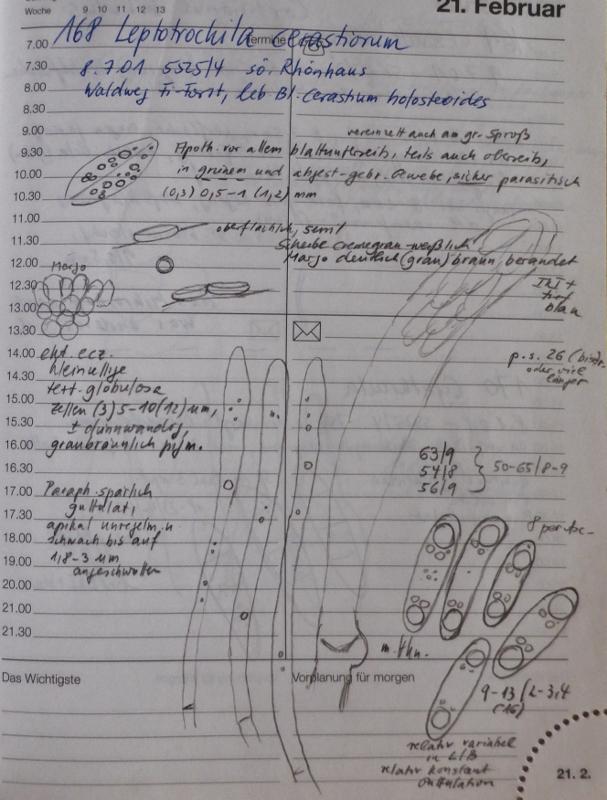 Woche 9 10 11 12 13
21. Februar
168 Leptotrochila cerastiorum
Termine
8.7.01 5525/4 sö. Rhönhaus
Waldweg Fi-Forst, leb Bl. Cerastium holosteoides
vereinzelt auch am gr. Sproß
Apoth. vor allem blattunterseits, teils auch oberseits,
in grünem und abgest.-gebr. Gewebe, sicher parasitisch
(0,3) 0,5-1 (1,2) mm
oberflächlich,
Scheibe cremegrau-weißlich
Margo deutlich (grau)braun, berandet
IKI +
tief
blau
Margo
7.00
7.30
8.00
8.30
9.00
9.30
10.00
10.30
11.00
11.30
12.00
12.30
13.00
13.30
14.00
14.30
15.00
15.30
16.00
16.30
17.00
17.30
18.00
19.00
20.00
21.00
21.30
p.s. 26
oder
länger
ekt. ecz.
kleinzellige
text. globulosa
Zellen (3) 5-10 (12) µm,
± dünnwandig,
graubräunlich pigm.
63/9
54/8
56/9
50-65/8-9
Paraph. spärlich
guttulat,
apikal unregelm. u
schwach bis auf
1,8-3 µm
angeschwollen
8 per Asc.
m. Hkn.
Das Wichtigste
Vorplanung für morgen
9-13 /2-3,4
(16)
relativ variabel
in L/B
relativ konstant
Guttulation
21. 2.